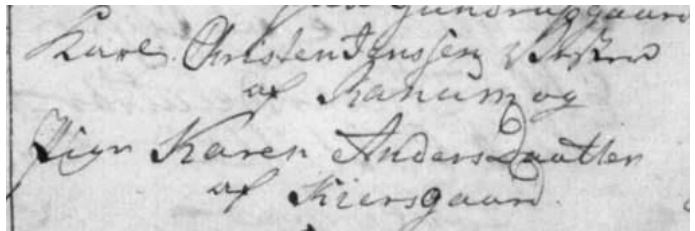 Gundrupgaard
Karl Christen Jenssen
af Ranum og
Pign Karen Anders Daatter
af Kiersgaard.